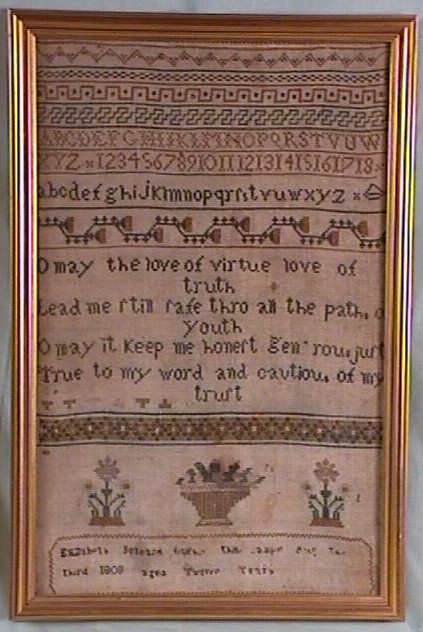 ABCDEFGHIJKLMNOPQRSTVUW
XYZ 123456789101112131415161718
abcdefghijklmnopqrſtvuwxyz
O may the love of virtue love of
truth
Lead me ſtill ſafe thro all the path, o
youth
O may it Keep me honeſt gen'rouſ juſt
True to my word and cautiouſ of my
truſt
Elizabeth this
third 1808 aged Twelve Years